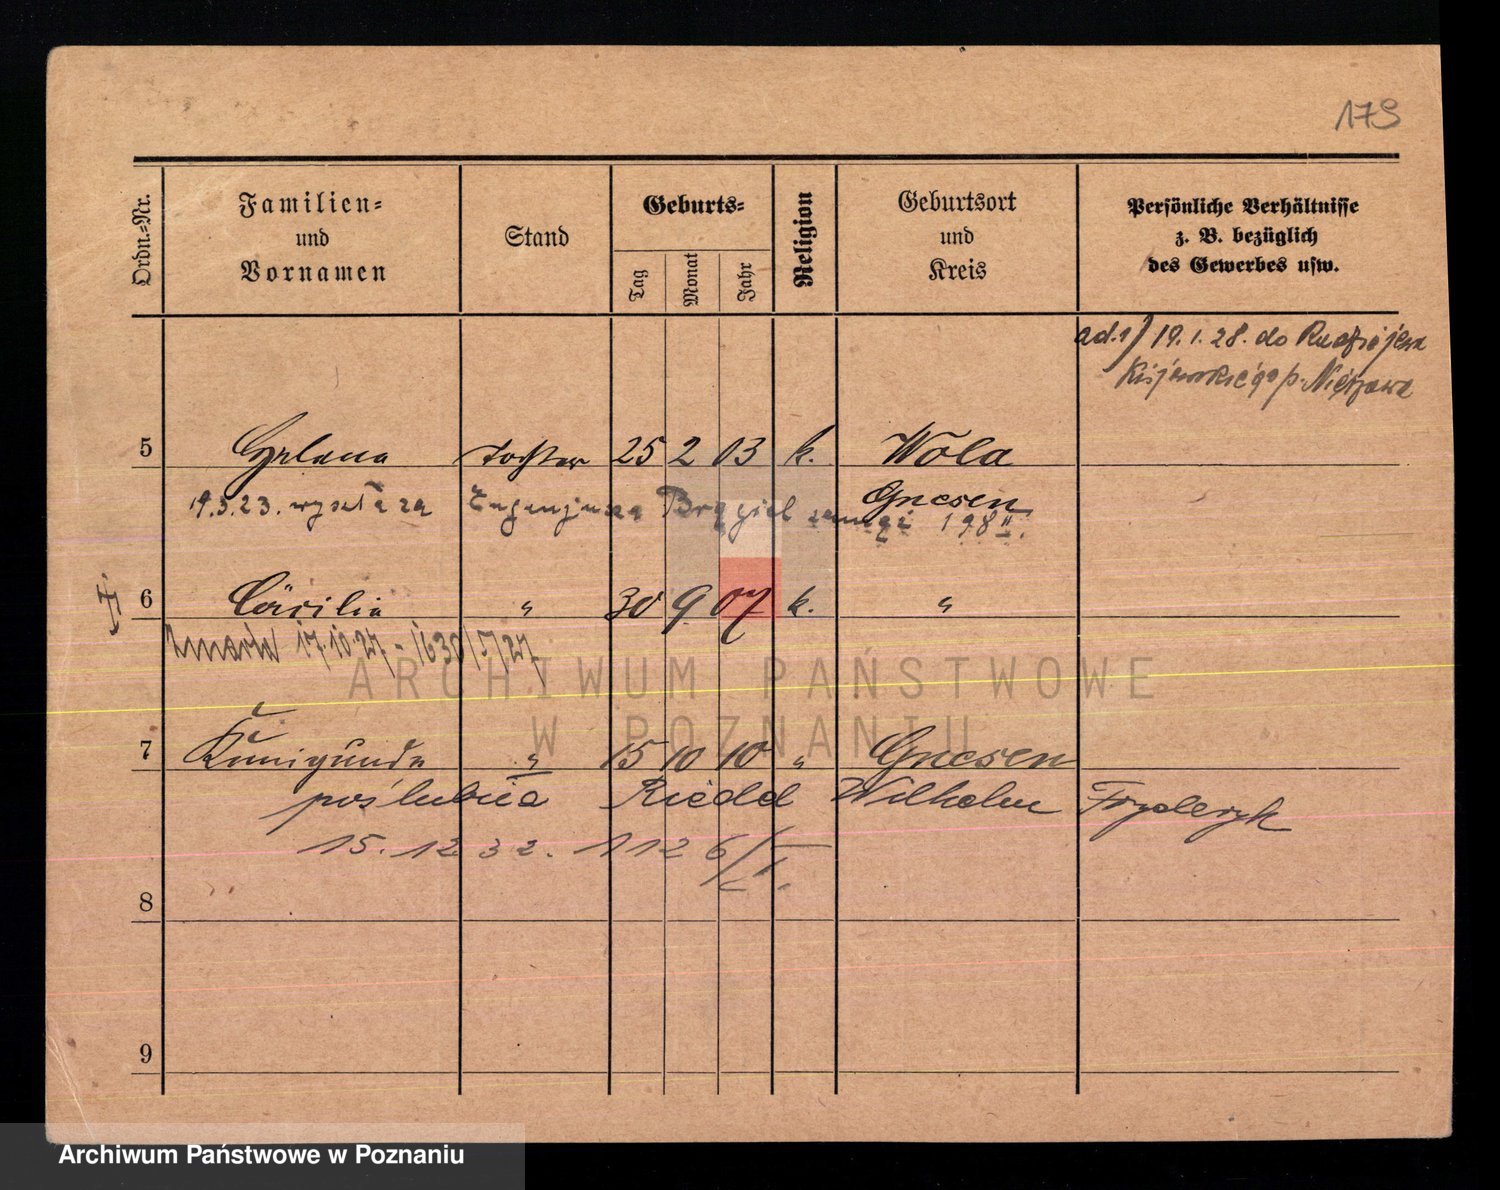 179
Ordn.=Nr.
Familien=
und
Vornamen
Stand
Geburts=
Tag
Monat
Jahr
Religion
Geburtsort
und
Kreis
Persönliche Verhältnisse
z. B. bezüglich
des Gewerbes usw.
ad.1) 19. 1. 28. do
p. Nieszawa
5 Helena Tochter 25 2 03 k. Wola
Gnesen
19.5.23. wyszła za Eugenjusza Brągiel 198 II.
6 Cäcilia " 30 9 07 k. "
Zmarła 17.10.27 - 1630/V/27
7 Kunigunda " 15 10 10 " Gnesen
poślubiła Riedel Wilhelm Fryderyk
15. 12 32. 1126/
8
9
ARCHIWUM PAŃSTWOWE
W POZNANIU
Archiwum Państwowe w Poznaniu